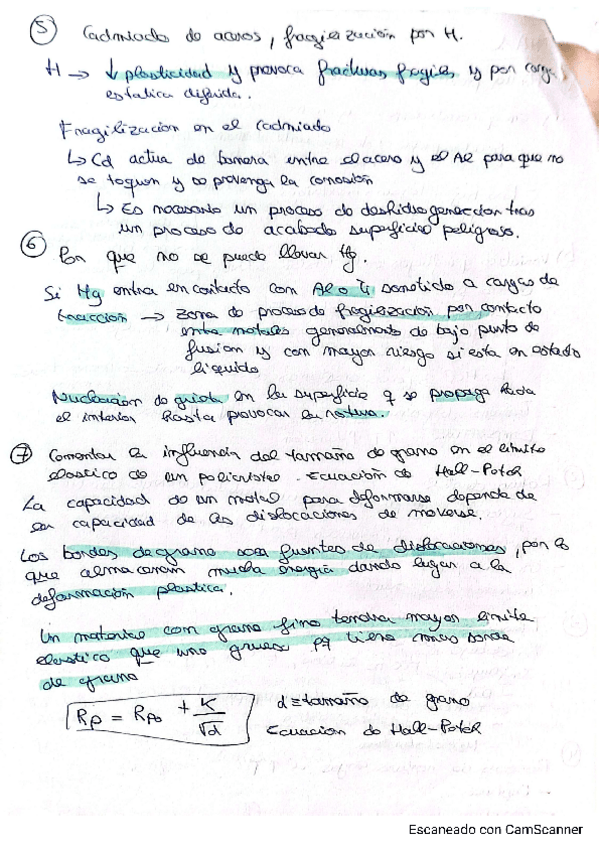 5 Cadmiado de aceros, fragilización por H.
H → ↓ plasticidad y provoca fracturas fragiles y por carga
estatica diferida.
Fragilización en el Cadmiado
↳ Cd actua de barrera entre el acero y el Al para que no
se toquen y se prevenga la corrosión
↳ Es necesario un proceso de deshidrogenación tras
un proceso de acabado superficial peligroso.
6 Por que no se puede llevar Hg.
Si Hg entra en contacto con Al o Ti sometido a cargas de
tracción → zona de proceso de fragilización por contacto
entre metales generalmente de bajo punto de
fusion y con mayor riesgo si esta en estado
liquido
Nucleación de grieta en la superficie q se propaga hacia
el interior hasta provocar la rotura.
7 Comentar la influencia del tamaño de grano en el limite
elastico de un policristal. Ecuación de Hall-Petch
La capacidad de un metal para deformarse depende de
la capacidad de las dislocaciones de moverse.
Los bordes de grano son fuentes de dislocaciones, por lo
que almacenan mucha energia dando lugar a la
deformación plastica.
Un material con grano fino tendra mayor limite
elastico que uno grueso pq tiene mas borde
de grano
Rp = Rpo + K/√d d = tamaño de grano
Ecuacion de Hall-Petch
Escaneado con CamScanner